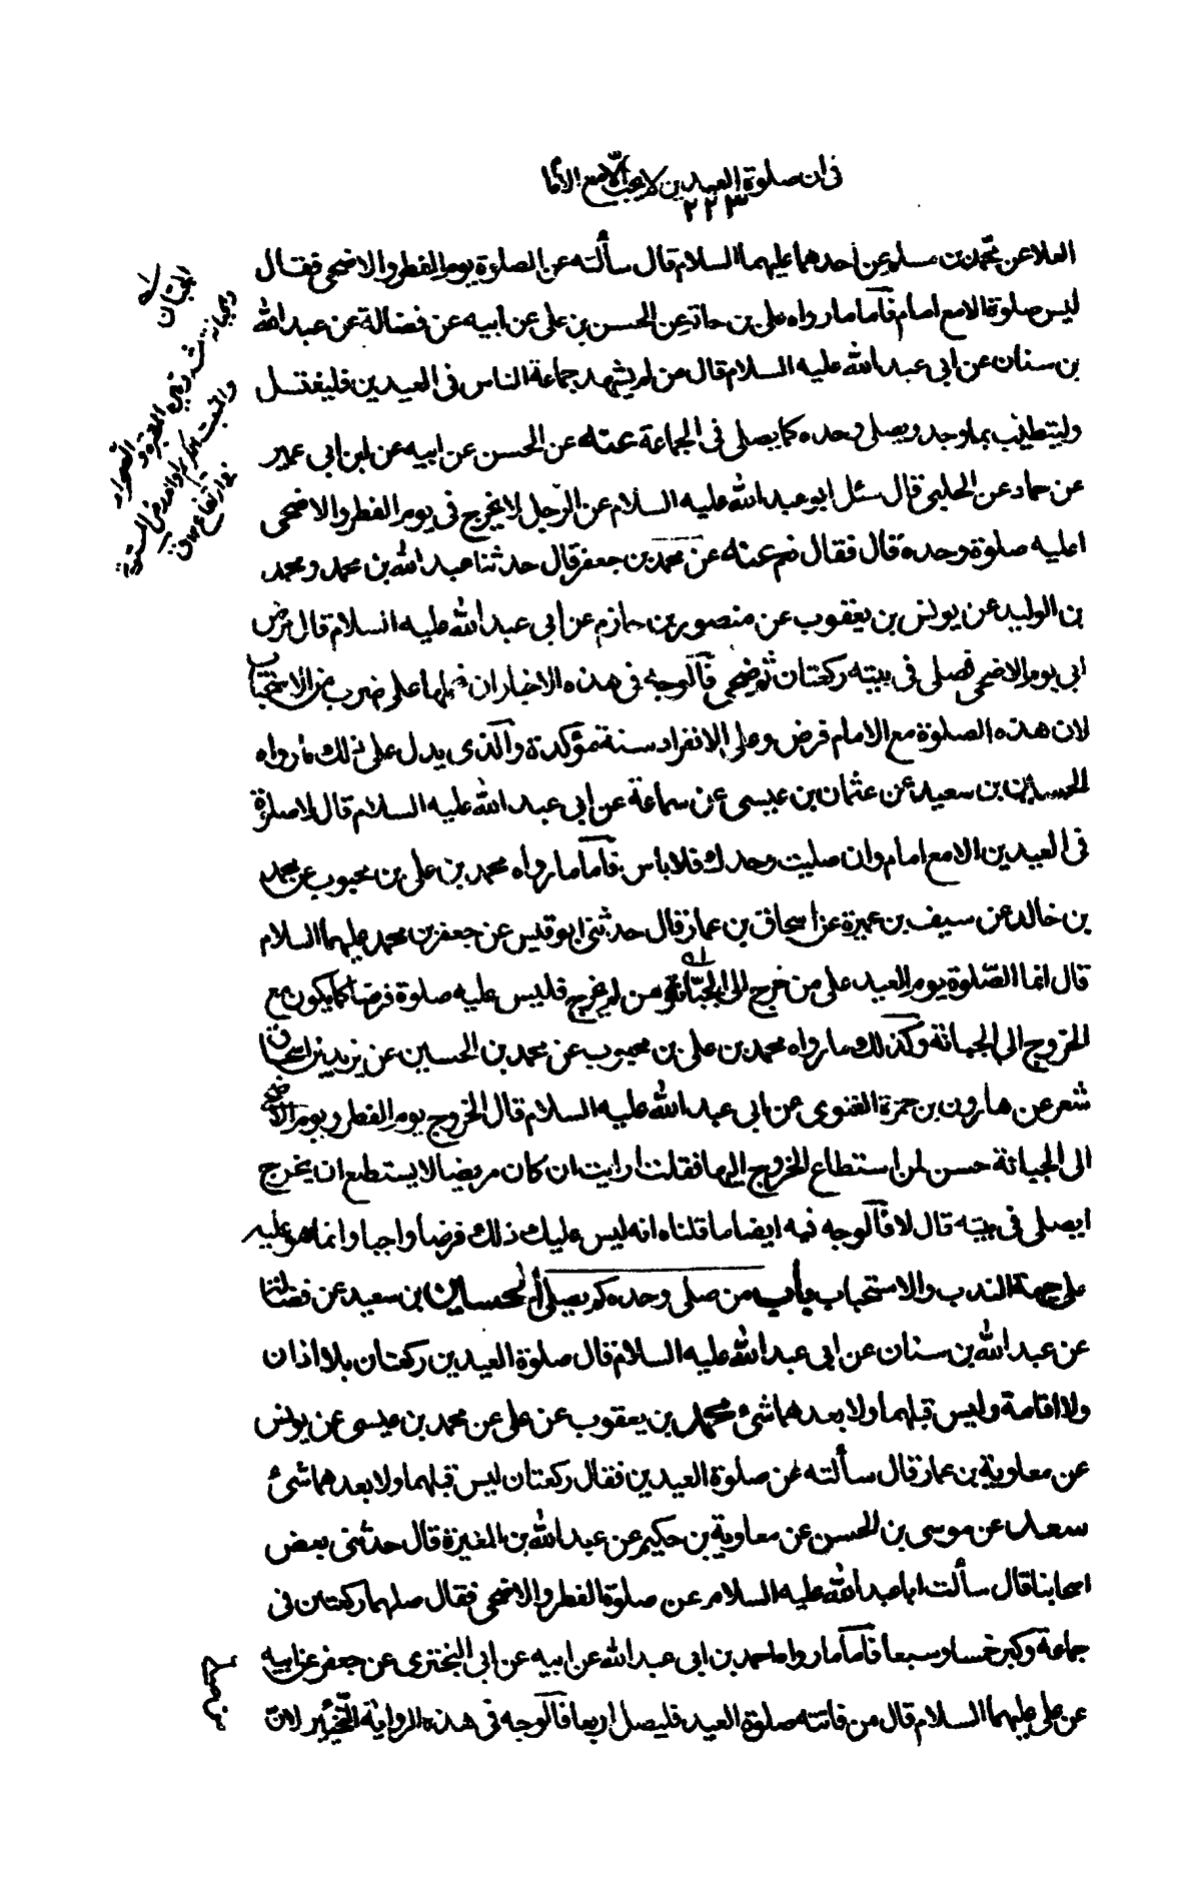 فى ان صلوة العيدين لا يجب الّا مع الامام
٢٢٣
العلا عن محمّد بن مسلم عن احدهما عليهما السلام قال سألته عن الصلوة يوم الفطر والاضحى فقال
ليس صلوة الا مع امام فأما ما رواه على بن حاتم عن الحسن بن على عن ابيه عن فضالة عن عبد الله
بن سنان عن ابى عبد الله عليه السلام قال من لم يشهد جماعة الناس فى العيدين فليغتسل
وليتطيب بما وجد ويصلى وحده كما يصلى فى الجماعة عنه عن الحسن عن ابيه عن ابن ابى عمير
عن حماد عن الحلبى قال سئل ابو عبد الله عليه السلام عن الرّجل لا يخرج فى يوم الفطر والاضحى
اعليه صلوة وحده قال فقال نعم عنه عن محمد بن جعفر قال حدثنا عبد الله بن محمد ومحمد
بن الوليد عن يونس بن يعقوب عن منصور بن حازم عن ابى عبد الله عليه السلام قال مرض
ابى يوم الاضحى فصلى فى بيته ركعتان ثم ضحى فالوجه فى هذه الاخبار ان نحملها على ضرب من الاستحباب
لان هذه الصلوة مع الامام فرض وعلى الانفراد سنة مؤكدة والذى يدل على ذلك ما رواه
الحسين بن سعيد عن عثمان بن عيسى عن سماعة عن ابى عبد الله عليه السلام قال لا صلوة
فى العيدين الا مع امام وان صليت وحدك فلا باس فأما ما رواه محمد بن على بن محبوب عن محمد
بن خالد عن سيف بن عميرة عن اسحاق بن عمار قال حدثنى ابو قيس عن جعفر بن محمد عليهما السلام
قال انما الصّلوة يوم العيد على من خرج الى الجبّانة ومن لم يخرج فليس عليه صلوة فرضا كما يكون مع
الخروج الى الجبانة وكذلك ما رواه محمد بن على بن محبوب عن محمد بن الحسين عن يزيد بن اسحاق
شعر عن هارون بن حمزة الغنوى عن ابى عبد الله عليه السلام قال الخروج يوم الفطر ويوم الاضحى
الى الجبانة حسن لمن استطاع الخروج اليها فقلت ارايت ان كان مريضا لا يستطيع ان يخرج
ايصلى فى بيته قال لا فالوجه فيه ايضا ما قلناه انه ليس عليك ذلك فرضا واجبا وانما هو عليه
على جهة الندب والاستحباب باب من صلى وحده كم يصلى الحسين بن سعيد عن فضالة
عن عبد الله بن سنان عن ابى عبد الله عليه السلام قال صلوة العيدين ركعتان بلا اذان
ولا اقامة وليس قبلهما ولا بعدهما شئ محمد بن يعقوب عن على عن محمد بن عيسى عن يونس
عن معاوية بن عمار قال سألته عن صلوة العيدين فقال ركعتان ليس قبلهما ولا بعدهما شئ
سعد عن موسى بن الحسن عن معاوية بن حكيم عن عبد الله بن المغيرة قال حدثنى بعض
اصحابنا قال سألت ابا عبد الله عليه السلام عن صلوة الفطر والاضحى فقال صلهما ركعتين فى
جماعة وكبر خمسا وسبعا فأما ما رواه احمد بن ابى عبد الله عن ابيه عن ابى البخترى عن جعفر عن ابيه
عن على عليهما السلام قال من فاتته صلوة العيد فليصل اربعا فالوجه فى هذه الرواية التّخيير لانّ